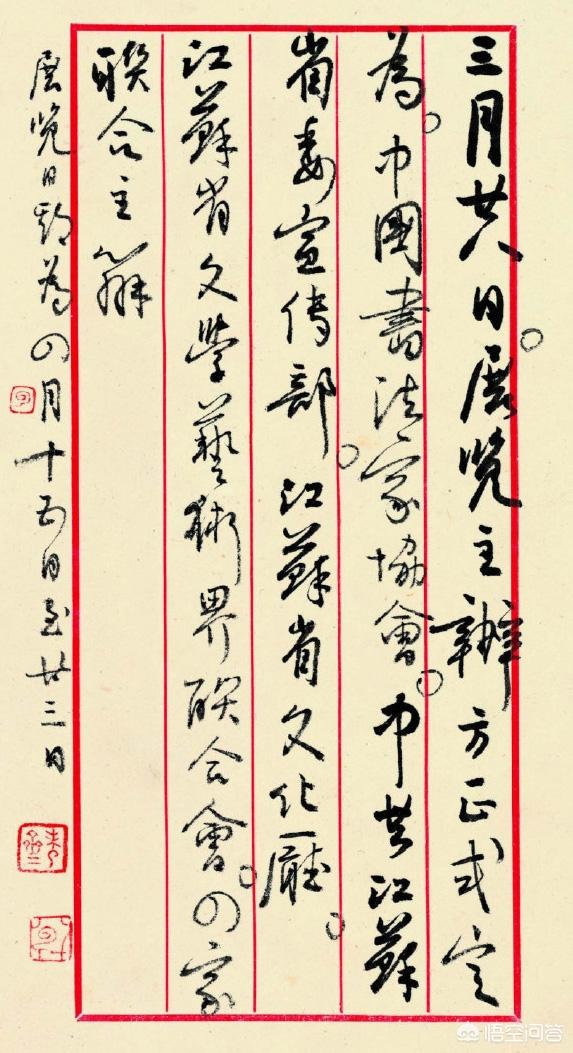 三月廿八日。展览主辦方正式定
為。中國書法家協會。中共江蘇
省委宣传部。江蘇省文化廳。
江蘇省文學藝術界联合會。四家
联合主辦
展览日期為四月十五日至廿三日
悟空问答